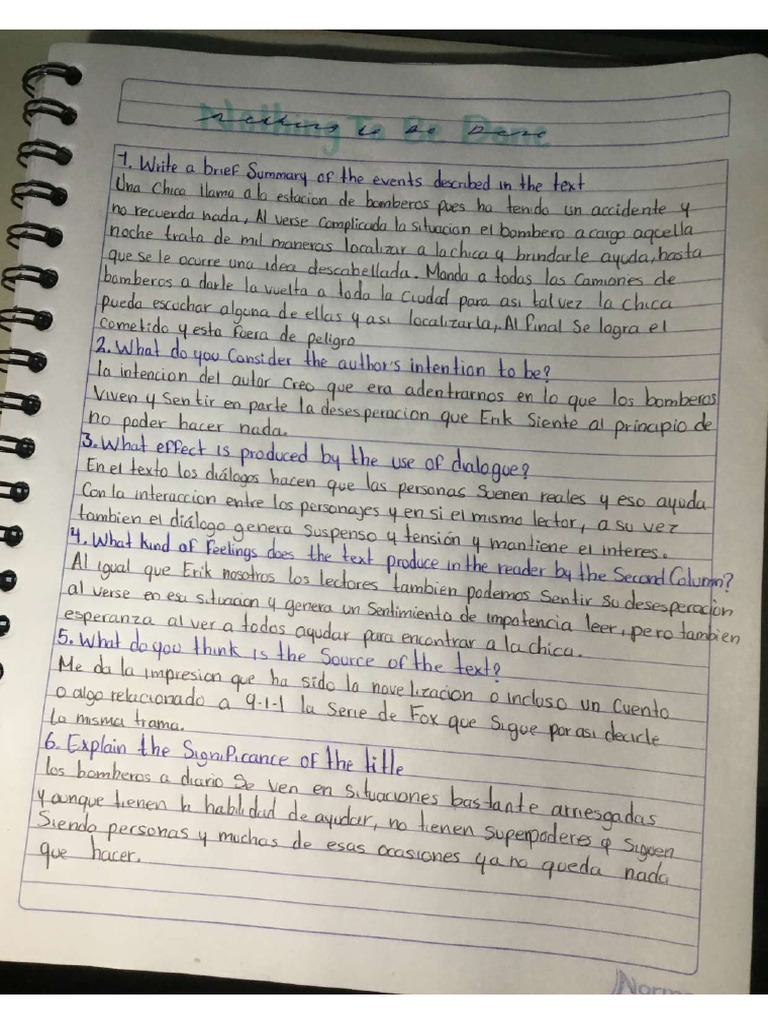 Nothing To Be Done
1. Write a brief Summary of the events described in the text
Una Chica llama a la estacion de bomberos pues ha tenido un accidente y
no recuerda nada, Al verse complicada la situacion el bombero a cargo aquella
noche trata de mil maneras localizar a la chica y brindarle ayuda, hasta
que se le ocurre una idea descabellada. Manda a todas las Camiones de
bomberos a darle la vuelta a toda la Ciudad para asi tal vez la chica
pueda escuchar alguna de ellas y asi localizarla, Al final Se logra el
cometido y esta fuera de peligro
2. What do you Consider the author's intention to be?
la intencion del autor Creo que era adentrarnos en lo que los bomberos
Viven y Sentir en parte la desesperacion que Erik Siente al principio de
no poder hacer nada.
3. What effect is produced by the use of dialogue?
En el texto los diálogos hacen que las personas Suenen reales y eso ayuda
Con la interaccion entre los personajes y en si el mismo lector, a su vez
tambien el diálogo genera suspenso y tensión y mantiene el interes.
4. What Kind of Feelings does the text produce in the reader by the Second Column?
Al igual que Erik nosotros los lectores tambien podemos Sentir su desesperacion
al verse en esa situacion y genera un Sentimiento de impotencia leer, pero tambien
esperanza al ver a todos ayudar para encontrar a la chica.
5. What do you think is the Source of the text?
Me da la impresion que ha sido la novelizacion o incluso un Cuento
o algo relacionado a 9-1-1 la Serie de Fox que Sigue por asi decirle
la misma trama.
6. Explain the Significance of the title
los bomberos a diario Se ven en situaciones bastante arriesgadas
y aunque tienen la habilidad de ayudar, no tienen superpoderes q siguen
Siendo personas y muchas de esas ocasiones ya no queda nada
que hacer.
Norma